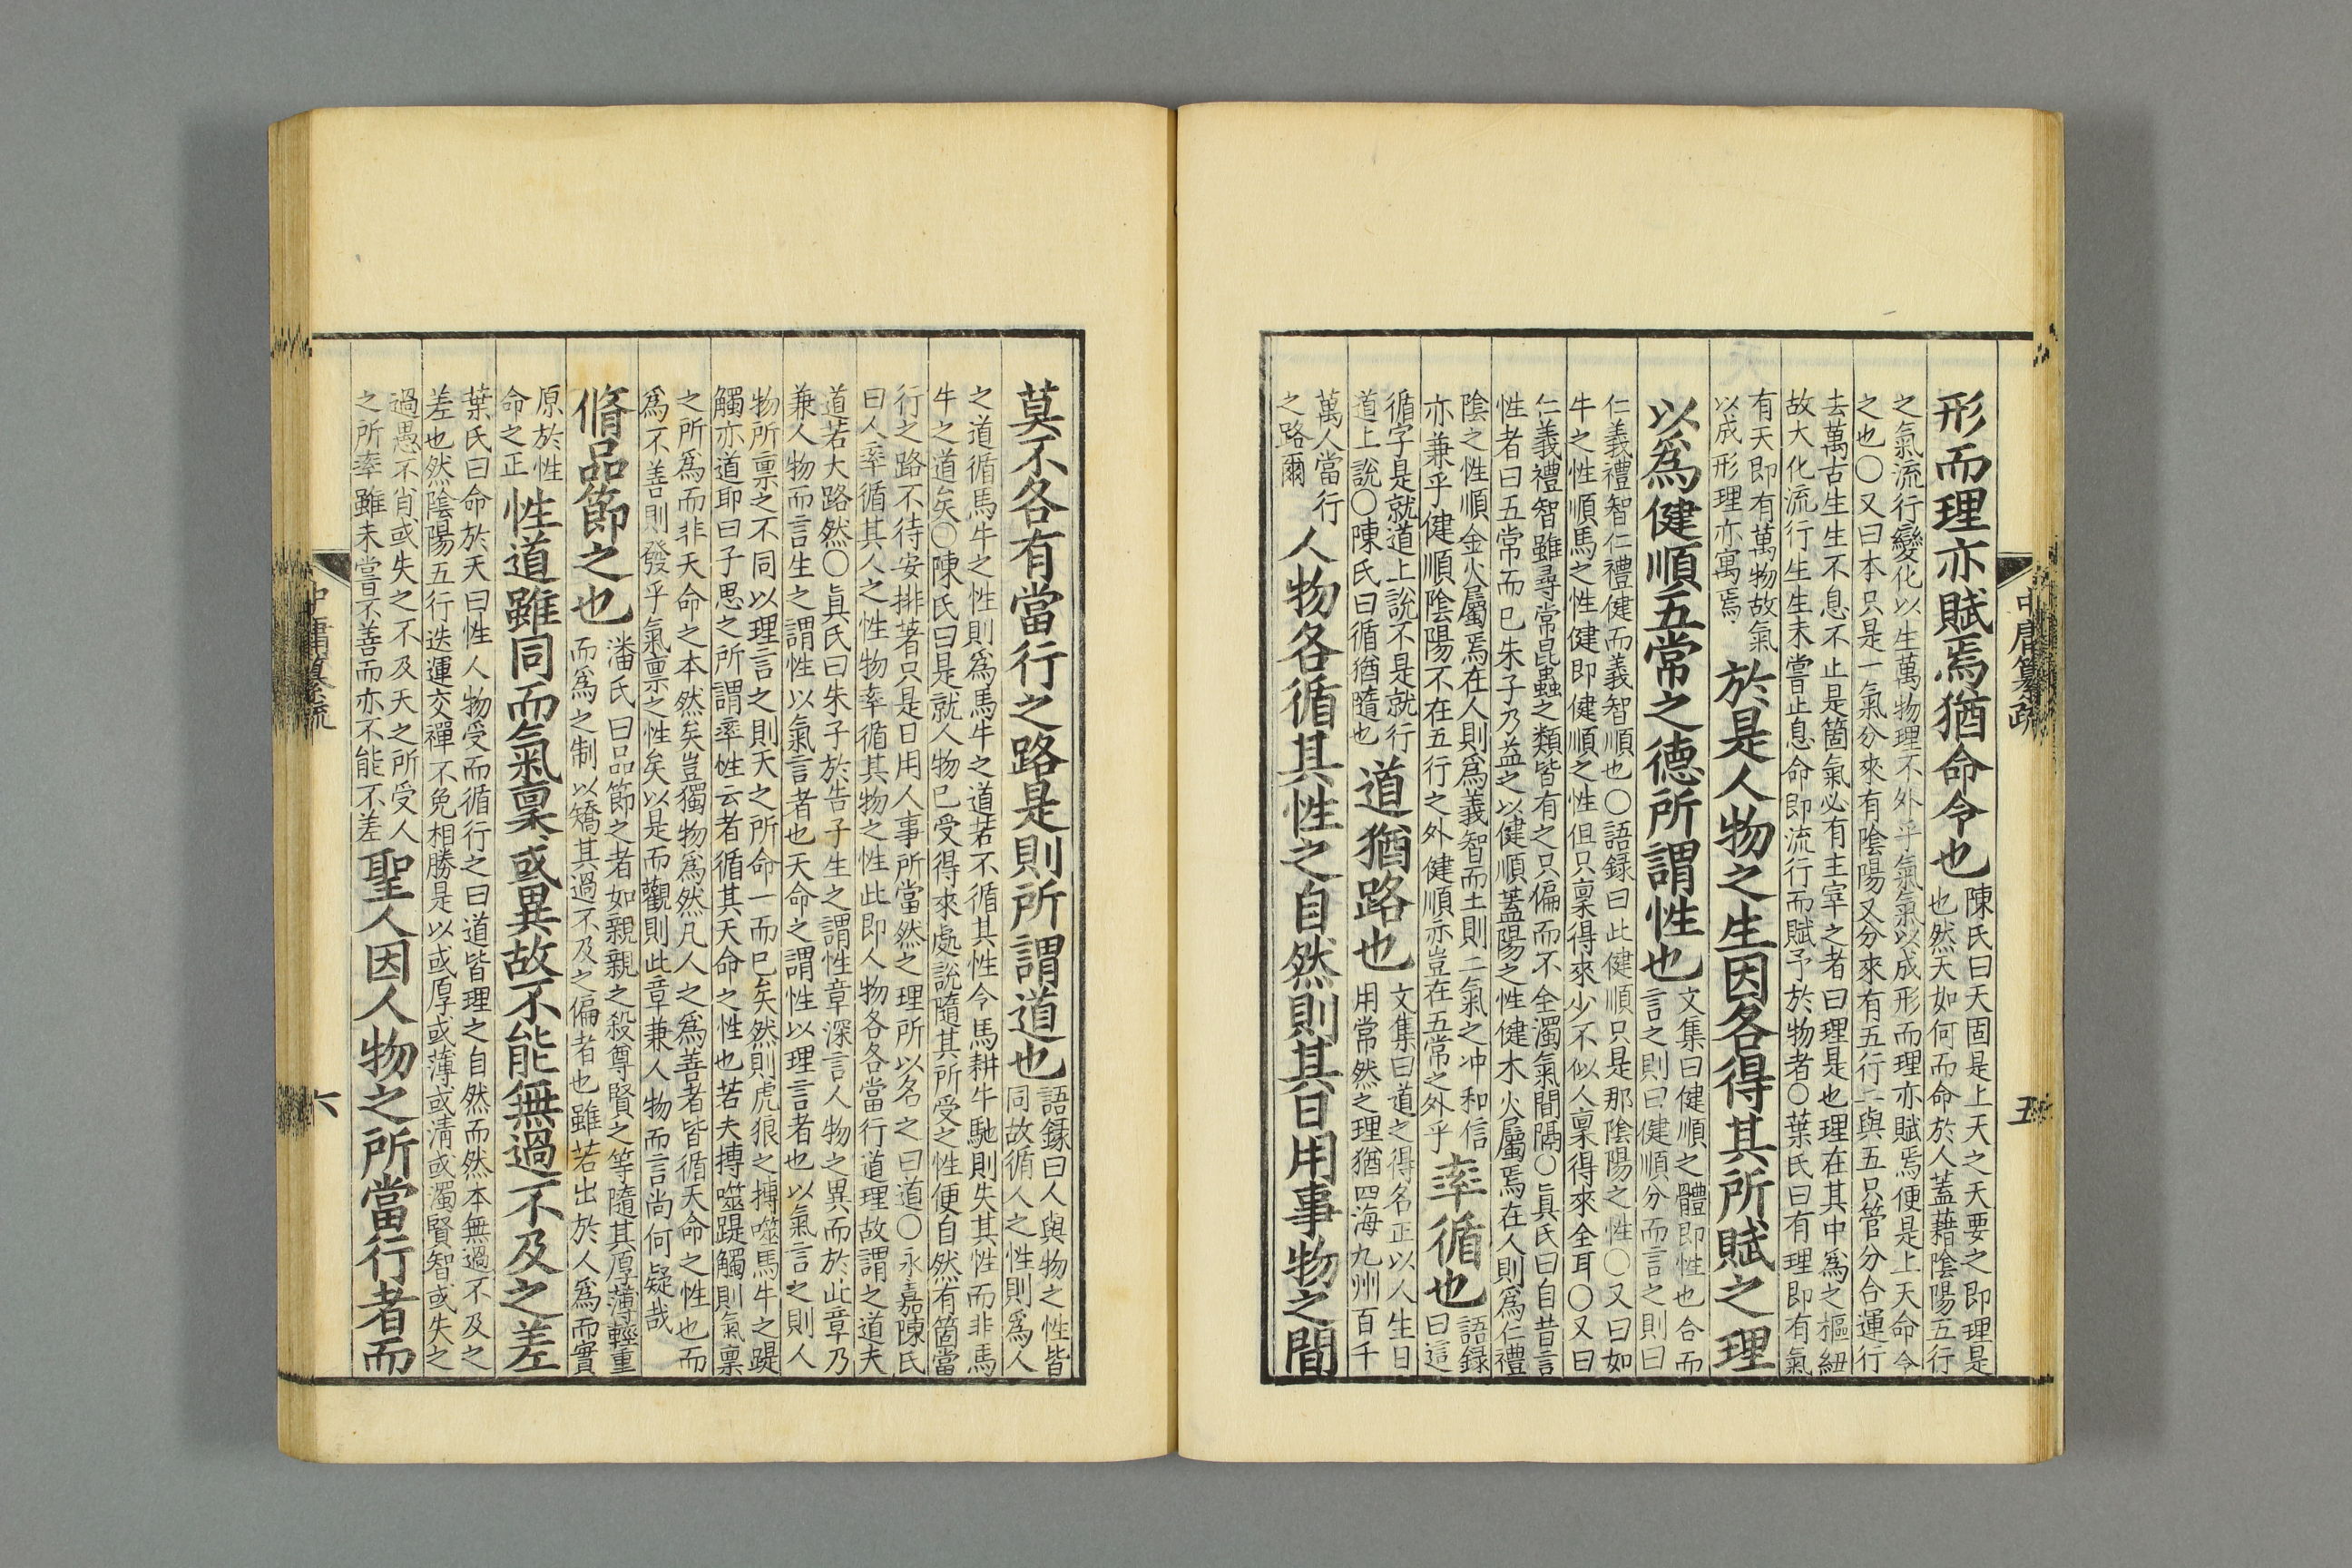 中庸纂疏
五
形而理亦賦焉猶命令也
陳氏曰天固是上天之天要之即理是
也然天如何而命於人蓋藉陰陽五行
之氣流行變化以生萬物理不外乎氣氣以成形而理亦賦焉便是上天命令
之也〇又曰本只是一氣分來有陰陽又分來有五行二與五只管分合運行
去萬古生生不息不止是箇氣必有主宰之者曰理是也理在其中爲之樞紐
故大化流行生生未嘗止息命即流行而賦予於物者〇葉氏曰有理即有氣
有天即有萬物故氣
以成形理亦寓焉
於是人物之生因各得其所賦之理
以爲健順五常之德所謂性也
文集曰健順之體即性也合而
言之則曰健順分而言之則曰
仁義禮智仁禮健而義智順也〇語録曰此健順只是那陰陽之性〇又曰如
牛之性順馬之性健即健順之性但只稟得來少不似人稟得來全耳〇又曰
仁義禮智雖尋常昆蟲之類皆有之只偏而不全濁氣間隔〇眞氏曰自昔言
性者曰五常而已朱子乃益之以健順蓋陽之性健木火屬焉在人則爲仁禮
陰之性順金火屬焉在人則爲義智而土則二氣之冲和信
亦兼乎健順陰陽不在五行之外健順亦豈在五常之外乎
率循也
語録
曰這
循字是就道上說不是就行
道上說〇陳氏曰循猶隨也
道猶路也
文集曰道之得名正以人生日
用常然之理猶四海九州百千
萬人當行
之路爾
人物各循其性之自然則其日用事物之間
莫不各有當行之路是則所謂道也
語録曰人與物之性皆
同故循人之性則爲人
之道循馬牛之性則爲馬牛之道若不循其性令馬耕牛馳則失其性而非馬
牛之道矣〇陳氏曰是就人物已受得來處說隨其所受之性便自然有箇當
行之路不待安排著只是日用人事所當然之理所以名之曰道〇永嘉陳氏
曰人率循其人之性物率循其物之性此即人物各各當行道理故謂之道夫
道若大路然〇眞氏曰朱子於告子生之謂性章深言人物之異而於此章乃
兼人物而言生之謂性以氣言者也天命之謂性以理言者也以氣言之則人
物所稟之不同以理言之則天之所命一而已矣然則虎狼之搏噬馬牛之踶
觸亦道耶曰子思之所謂率性云者循其天命之性也若夫搏噬踶觸則氣稟
之所爲而非天命之本然矣豈獨物爲然凡人之爲善者皆循天命之性也而
爲不善則發乎氣稟之性矣以是而觀則此章兼人物而言尚何疑哉
脩品節之也
潘氏曰品節之者如親親之殺尊賢之等隨其厚薄輕重
而爲之制以矯其過不及之偏者也雖若出於人爲而實
原於性
命之正
性道雖同而氣稟或異故不能無過不及之差
葉氏曰命於天曰性人物受而循行之曰道皆理之自然而然本無過不及之
差也然陰陽五行迭運交禪不免相勝是以或厚或薄或清或濁賢智或失之
過愚不肖或失之不及天之所受人
之所率雖未嘗不善而亦不能不差
聖人因人物之所當行者而
中庸纂疏
六